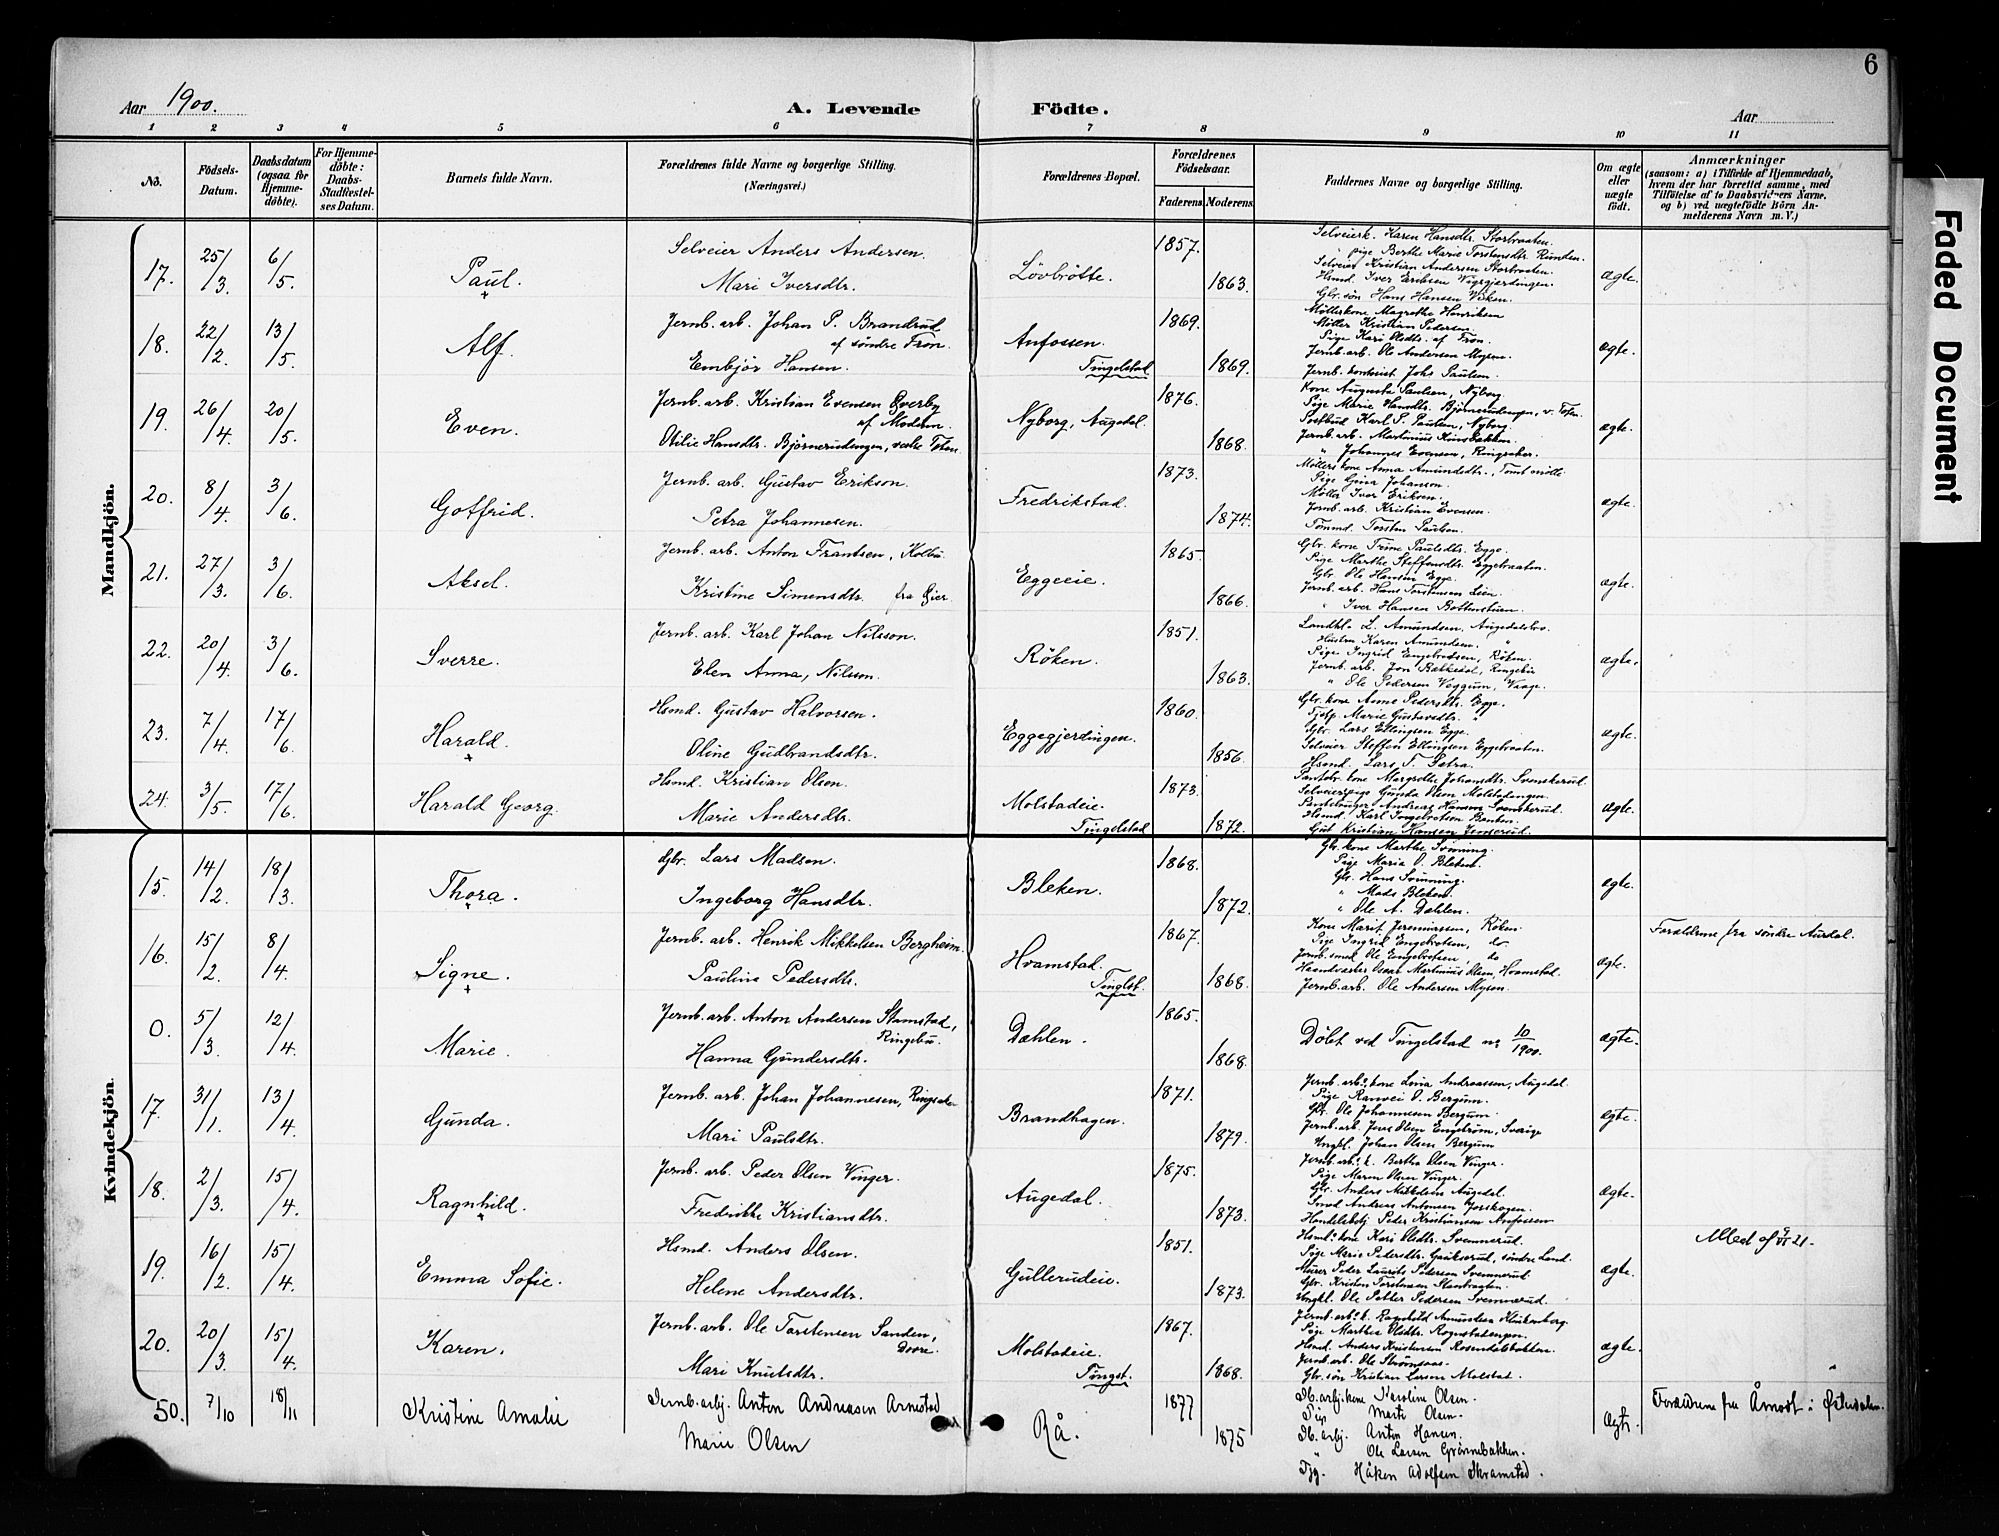 6
Aar 1900.
A. Levende Födte.
Aar
1 2 3 4 5 6 7 8 9 10 11
No.
Födsels-Datum.
Daabsdatum (ogsaa for Hjemmedöbte).
For Hjemmedöbte: Daabs-Stadfestelses Datum.
Barnets fulde Navn.
Forældrenes fulde Navne og borgerlige Stilling.
(Næringsvei.)
Forældrenes Bopæl.
Forældrenes Födselsaar.
Faderens Moderens
Faddernes Navne og borgerlige Stilling.
Om ægte eller uægte födt.
Anmærkninger
(saasom: a) i Tilfælde af Hjemmedaab, hvem der har forrettet samme, med Tilföielse af to Daabsvidners Navne. og b) ved uægtefödte Börn Anmelderens Navn m. V.)
Faded Document
Mandkjön.
17. 25/3 6/5 Paul.
Selveier Anders Andersen.
Mari Iversdtr.
Lövbråtte. 1857. 1863.
Selveierk. Karen Hansdtr. Storbraaten.
" pige Berthe Marie Torstensdtr. Ründen.
Selveier Kristian Andersen Storbraaten.
Hsmd. Iver Eriksen Vigsgjerdingen.
Gbr. søn Hans Hansen Viken.
ægte.
18. 22/2 13/5 Alf.
Jernb. arb. Johan P. Brandrud
af søndre Fron.
Embjør Hansen.
Anfossen.
Tingelstad 1869. 1869.
Møllerkone Magrethe Henriksen
Møller Kristian Pedersen.
Pige Kari Olsdtr. af Fron.
Jernb. arb. Ole Andersen Mysen.
Jernb. kontorist Johs Paulsen.
ægte.
19. 26/4 20/5 Even.
Jernb. arb. Kristian Evensen Överby
af Modum.
Otilie Hansdtr. Bjørnerudengen, vestre Toten.
Nyborg, Augedal. 1876. 1868.
Kone Augusta Paulsen, Nyborg
Pige Marie Hansdtr. Bjørnerudengen, v. Toten.
Postbud Karl P. Paulsen, Nyborg.
Jernb. arb. Martinius
" Johannes Evensen, Ringsaker.
ægte.
20. 8/4 3/6 Gotfrid.
Jernb. arb. Gustav Erikson.
Petra Johannesen.
Fredrikstad. 1873. 1874.
Møllers kone Anna Amundsdtr., Tomt mølle
Pige Gina Johansen.
Møller Iver Eriksen.
Jernb. arb. Kristian Evensen.
Tømmd. Torsten Paulsen.
ægte.
21. 27/3 3/6 Aksel.
Jernb. arb. Anton Frantsen, Kolbu.
Kristine Simensdtr. fra Eier
Eggeeie. 1865. 1866.
Gbr. kone Trine Paulsdtr. Egge.
Pige Marthe Steffensdtr. Eggebraaten.
Gbr. Ole Hansen Egge.
Jernb. arb. Hans Torstensen Lien.
" Iver Hansen Bottenstuen.
ægte.
22. 20/4 3/6 Sverre.
Jernb. arb. Karl Johan Nilsson.
Elen Anna, Nilsson.
Røken. 1851. 1863.
Landhl. L. Amundsen, Augedalsbro.
Hustru Karen Amundsen "
Pige Ingrid Engebretsen, Røken.
Jernb. arb. Jon Bækkedal, Ringebu
" Ole Pedersen Veggum, Vaage.
ægte.
23. 7/4 17/6 Harald.
Hsmd. Gustav Halvorsen.
Oline Gudbrandsdtr.
Eggegjerdingen. 1860. 1856.
Gbr. kone Anne Pedersdtr. Egge.
Tjp. Marie Gustavsdtr. "
Gbr. Lars Ellingsen Egge.
Selveier Steffen Ellingsen Eggebraaten.
Hsmd. Lars T. Sætra.
ægte.
24. 3/5 17/6 Harald Georg.
Hsmd. Kristian Olsen.
Marie Andersdtr.
Molstadeie.
Tingelstad 1873. 1872.
Pantebr. kone Margrethe Johansdtr. Svenskerud.
Selveierpige Gunda Olsen Molstadengen.
Pantebruger Andreas Hansen Svenskerud.
Hsmd. Karl Ingebretsen
Gut Kristian Hansen
ægte.
Kvindekjön.
15. 14/2 18/3 Thora.
Gbr. Lars Madsen.
Ingeborg Hansdtr.
Bleken. 1868. 1872.
Gbr. kone Marthe Svinning.
Pige Maria O. Bleken.
Gbr. Hans Svinning.
" Mads Bleken.
" Ole A. Dæhlen.
ægte.
16. 15/2 8/4 Signe.
Jernb. arb. Henrik Mikkelsen Bergheim.
Pauline Pedersdtr.
Hvamstad.
Tinglst. 1867. 1868.
Kone Marit Jeremiassen, Røken.
Pige Ingrid Engebretsen, do
Jernb. smed Ole Engebretsen, do
Haandværker Oscar Martinius Olsen, Hvamstad.
Jernb. arb. Ole Andersen Mysen.
ægte.
Forældrene fra søndre Aurdal.
0. 5/3 12/4 Marie.
Jernb. arb. Anton Andersen Stamstad,
Ringebu.
Hanna Gundersdtr.
Dæhlen. 1865. 1868.
Døbt ved Tingelstad nr 10/1900.
ægte.
17. 31/1 13/4 Gunda.
Jernb. arb. Johan Johannesen, Ringsaker
Mari Paulsdtr.
Brandhagen. 1871. 1879.
Jernb. arb.s kone Lina Andreassen, Augedal.
Pige Ranvei O. Bergum.
Gbr. Ole Johannesen Bergum.
Jernb. arb. Jens Olsen Engstrøm, Sverige
Ungkl. Johan Olsen Bergum
ægte.
18. 2/3 15/4 Ragnhild.
Jernb. arb. Peder Olsen Vinger.
Fredrikke Kristiansdtr.
Augedal. 1875. 1873.
Jernb. arb.s k. Bertha Olsen Vinger.
Pige Maren Olsen Vinger.
Gbr. Anders Mikkelsen Augedal.
Smed Andreas Antonsen Jorskogen.
Handelsbetj. Peder Kristiansen Anfossen
ægte.
19. 16/2 15/4 Emma Sofie.
Hsmd. Anders Olsen.
Helene Andersdtr.
Gullerudeie. 1851. 1873.
Hsmd.s kone Kari Olsdtr. Svennerud.
Pige Marie Pedersdtr. Gaukerud, søndre Land.
Murer Peder Laurits Pedersen Svennerud.
Gbr. Kristen Torstensen
Ungkl. Ole Petter Pedersen Svennerud.
ægte.
20. 20/3 15/4 Karen.
Jernb. arb. Ole Torstensen Sanden,
Dovre.
Mari Knutsdtr.
Molstadeie.
Tingst. 1867. 1868.
Jernb. arb.s k. Ragnhild Amundsen Klukenberg.
Pige Marthea Olsdtr. Rognstadengen.
Hsmd. Anders Kristensen Rosendalsbakken.
Jernb. arb. Ole Strømsaas.
Gbr. søn Kristian Larsen Molstad.
ægte.
50. 7/10 18/11 Kristine Amalie
Jernb. arbj. Anton Andreasen Arnestad
Marie Olsen
Rå. 1877 1875
Jb. arbj. kone Karoline Olsen.
Pige Marte Olsen.
Jb. arbj. Anton Hansen.
" Ole Larsen Grønnebakken.
Tjg. Håken Adolfsen Skramstad.
Ægte.
Forældrene fra Åmodt i Østerdalen.